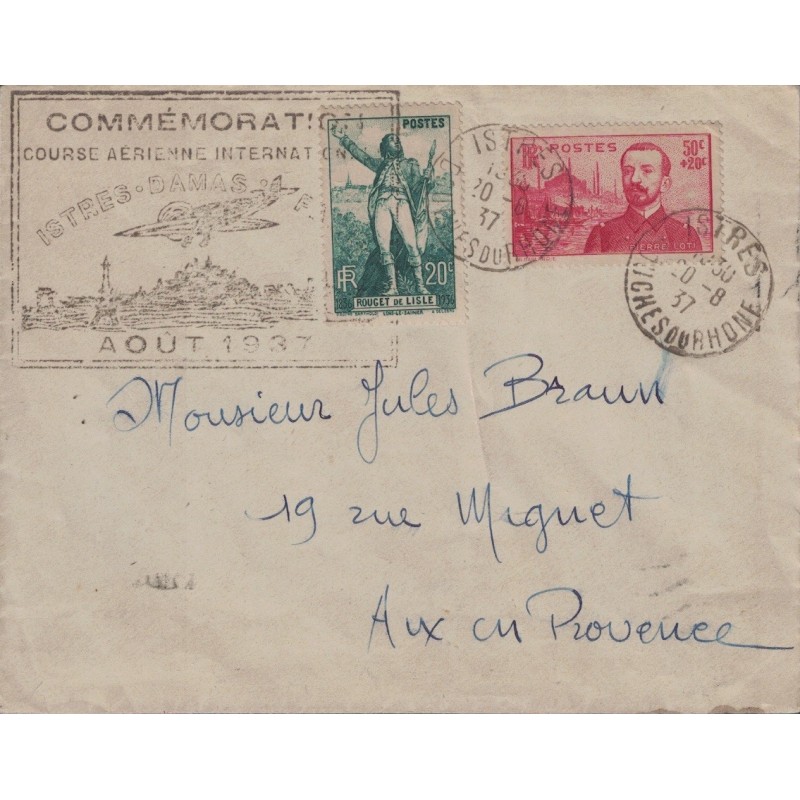 COMMÉMORATION
COURSE AÉRIENNE INTERNATION
ISTRES·DAMAS·
AOÛT 1937
POSTES
RF
20c
1836 ROUGET DE LISLE 1936
RF POSTES 50c
+20c
PIERRE LOTI
ISTRES
20 -8
37
CHES DU RHONE
ISTRES
1830
20 -8
37
BCHES DU RHONE
Monsieur Jules Braun
19 rue Mignet
Aix en Provence